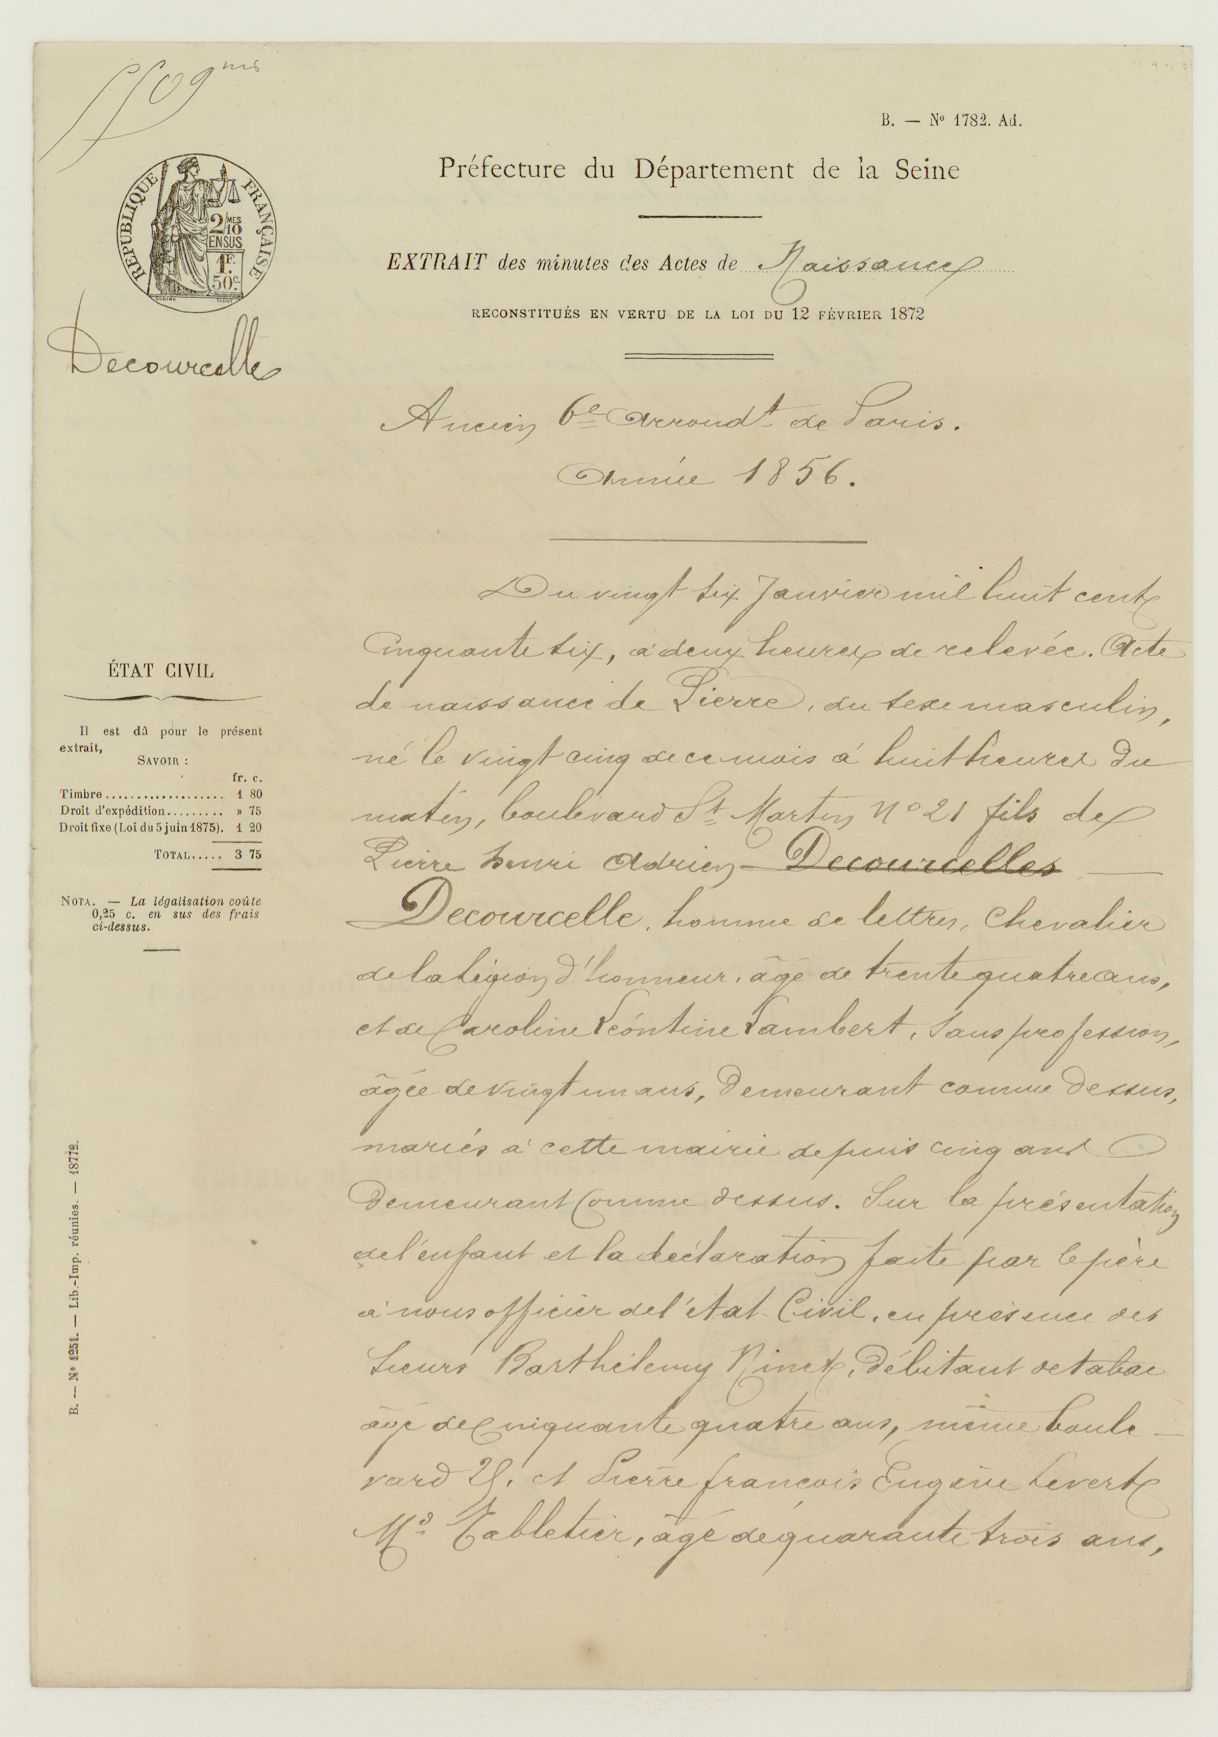 B. — Nº 1782. Ad.
Préfecture du Département de la Seine
RÉPUBLIQUE FRANÇAISE
2/10 MES
EN SUS
1F.
50c.
EXTRAIT des minutes des Actes de Naissance
RECONSTITUÉS EN VERTU DE LA LOI DU 12 FÉVRIER 1872
Decourcelle
Ancien 6e Arrondt de Paris.
Année 1856.
Du vingt six Janvier mil huit cent
Cinquante six, à deux heures de relevée. Acte
de naissance de Pierre, du sexe masculin,
né le vingt cinq de ce mois à huit heures du
matin, boulevard St Martin Nº 21 fils de
Pierre henri Adrien — Decourcelles —
Decourcelle, homme de lettres, Chevalier
de la légion d'honneur, âgé de trente quatre ans,
et de Caroline Léontine Lambert, Sans profession,
âgée de vingt un ans, Demeurant comme Dessus,
mariés à cette mairie depuis cinq ans
Demeurant Comme dessus. Sur la présentation
de l'enfant et la déclaration faite par le père
à nous officier de l'état Civil, en présence des
Sieurs Barthélemy, Débitant de tabac
âgé de Cinquante quatre ans, même boule —
vard et Pierre françois Eugène Levert
Md Tabletier, âgé de quarante trois ans,
ÉTAT CIVIL
Il est dû pour le présent
extrait,
SAVOIR :
fr. c.
Timbre.................. 1 80
Droit d'expédition......... » 75
Droit fixe (Loi du 5 juin 1875). 1 20
TOTAL..... 3 75
NOTA. — La légalisation coûte
0,25 c. en sus des frais
ci-dessus.
B. — Nº 1251. — Lib.-Imp. réunies. — 18772.